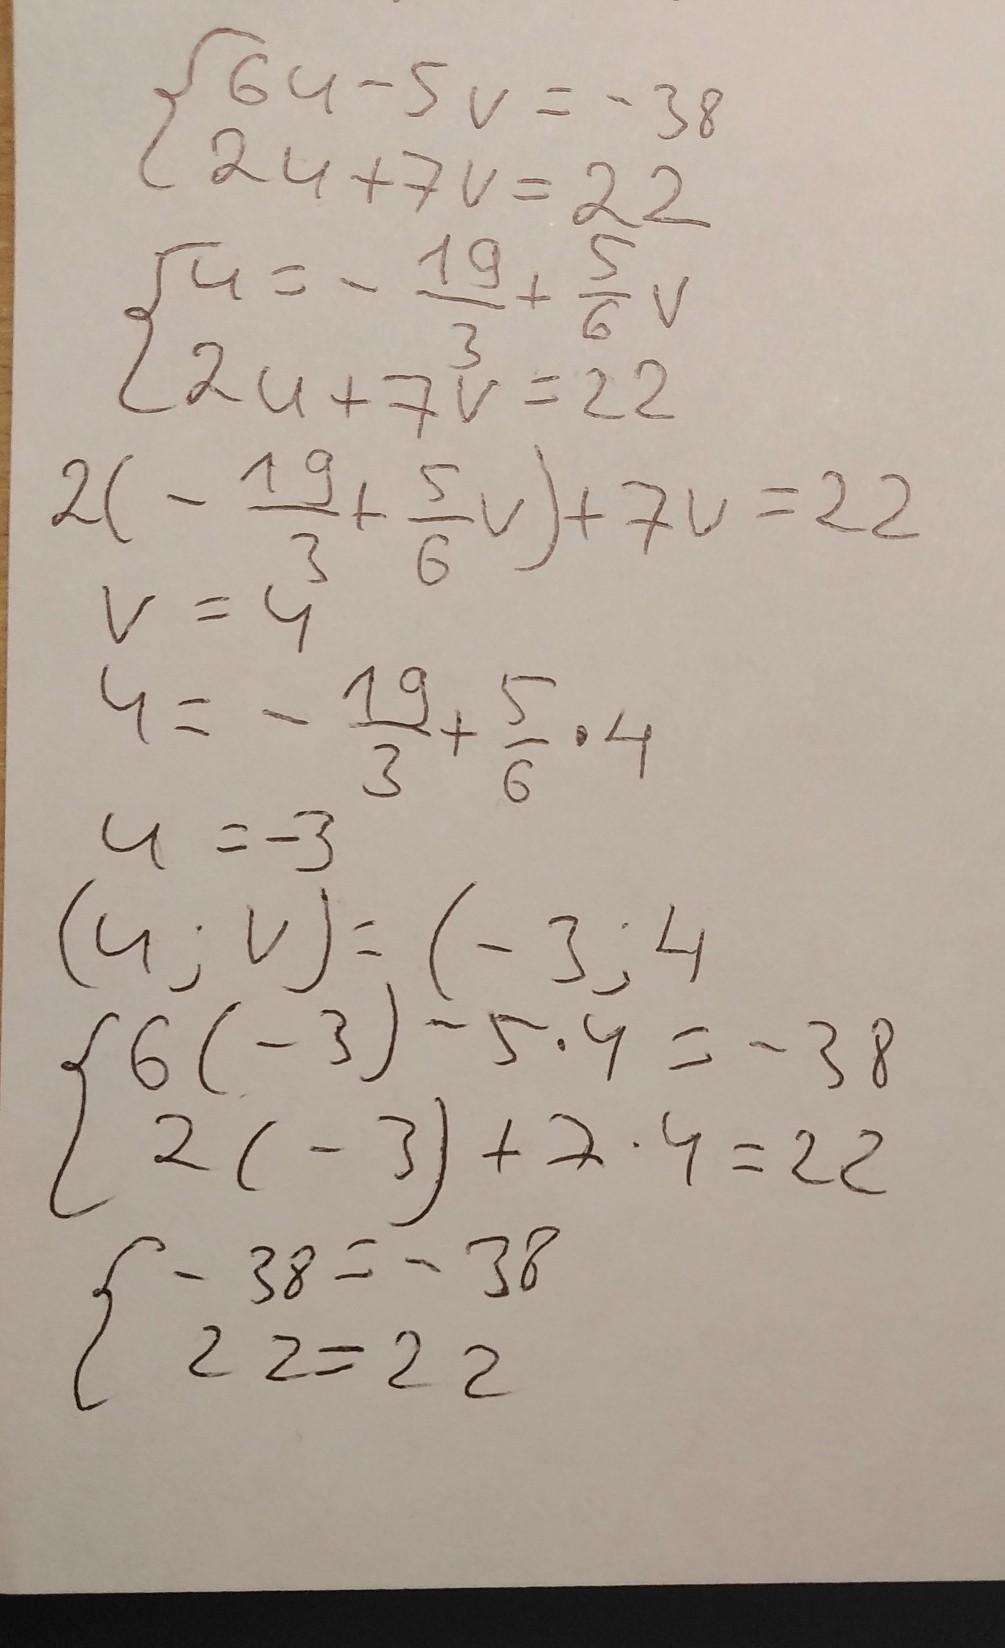 {6u-5v=-38
2u+7v=22
{u=-19/3+5/6v
2u+7v=22
2(-19/3+5/6v)+7v=22
v=4
u=-19/3+5/6·4
u=-3
(u;v)=(-3;4
{6(-3)-5·4=-38
2(-3)+7·4=22
{-38=-38
22=22